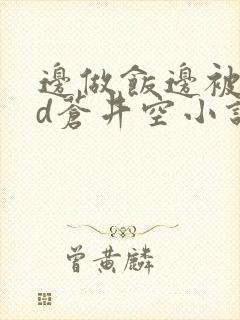 邊做飯邊被
d蒼井空小說
曾黃麟